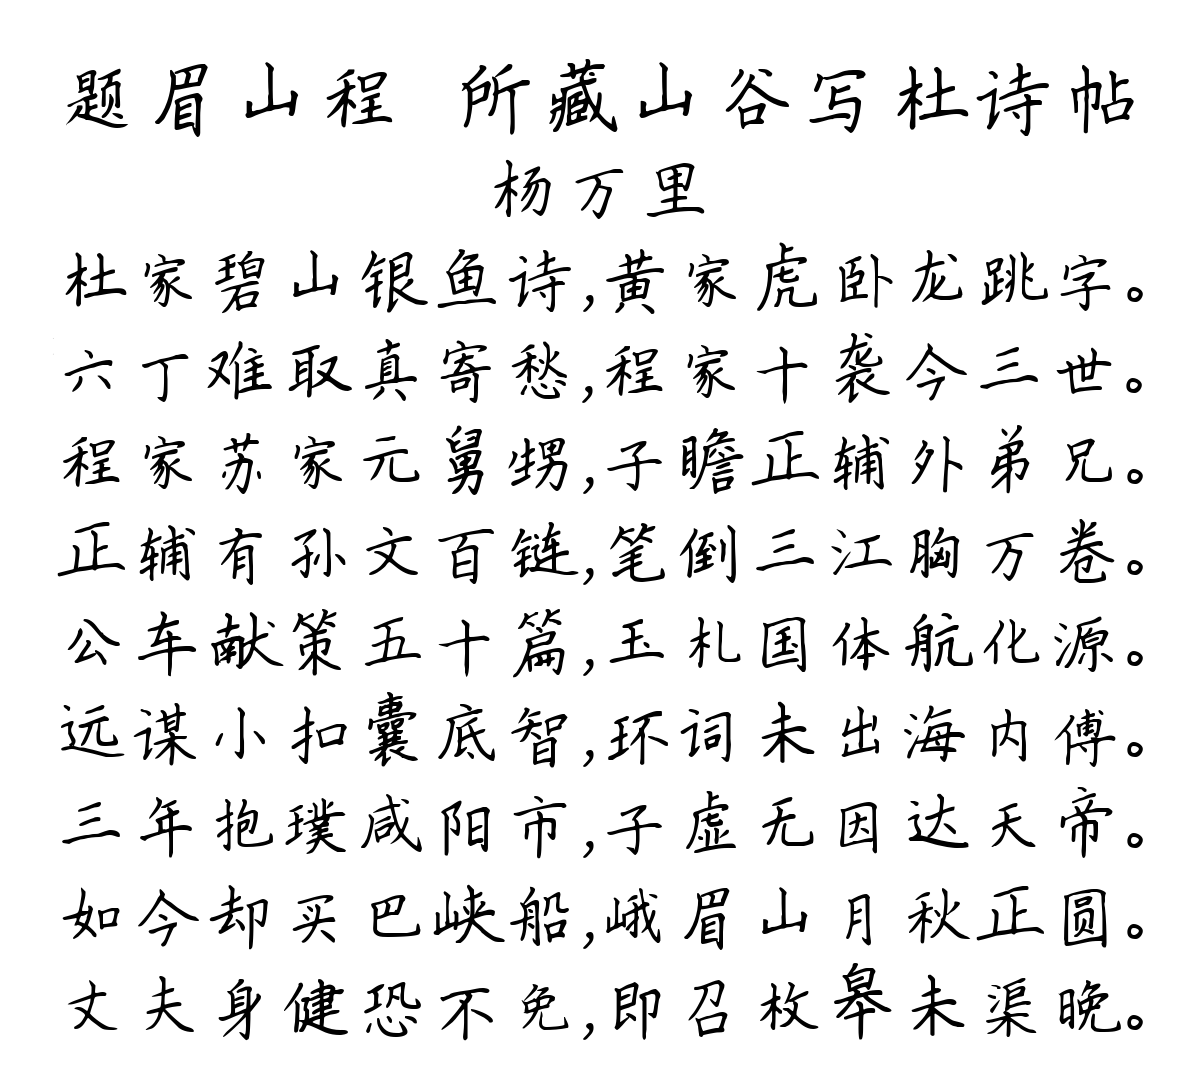 题眉山程 所藏山谷写杜诗帖
杨万里
杜家碧山银鱼诗,黄家虎卧龙跳字。
六丁难取真寄愁,程家十袭今三世。
程家苏家元舅甥,子瞻正辅外弟兄。
正辅有孙文百链,笔倒三江胸万卷。
公车献策五十篇,玉札国体航化源。
远谋小扣囊底智,环词未出海内傅。
三年抱璞咸阳市,子虚无因达天帝。
如今却买巴峡船,峨眉山月秋正圆。
丈夫身健恐不免,即召枚皋未渠晚。